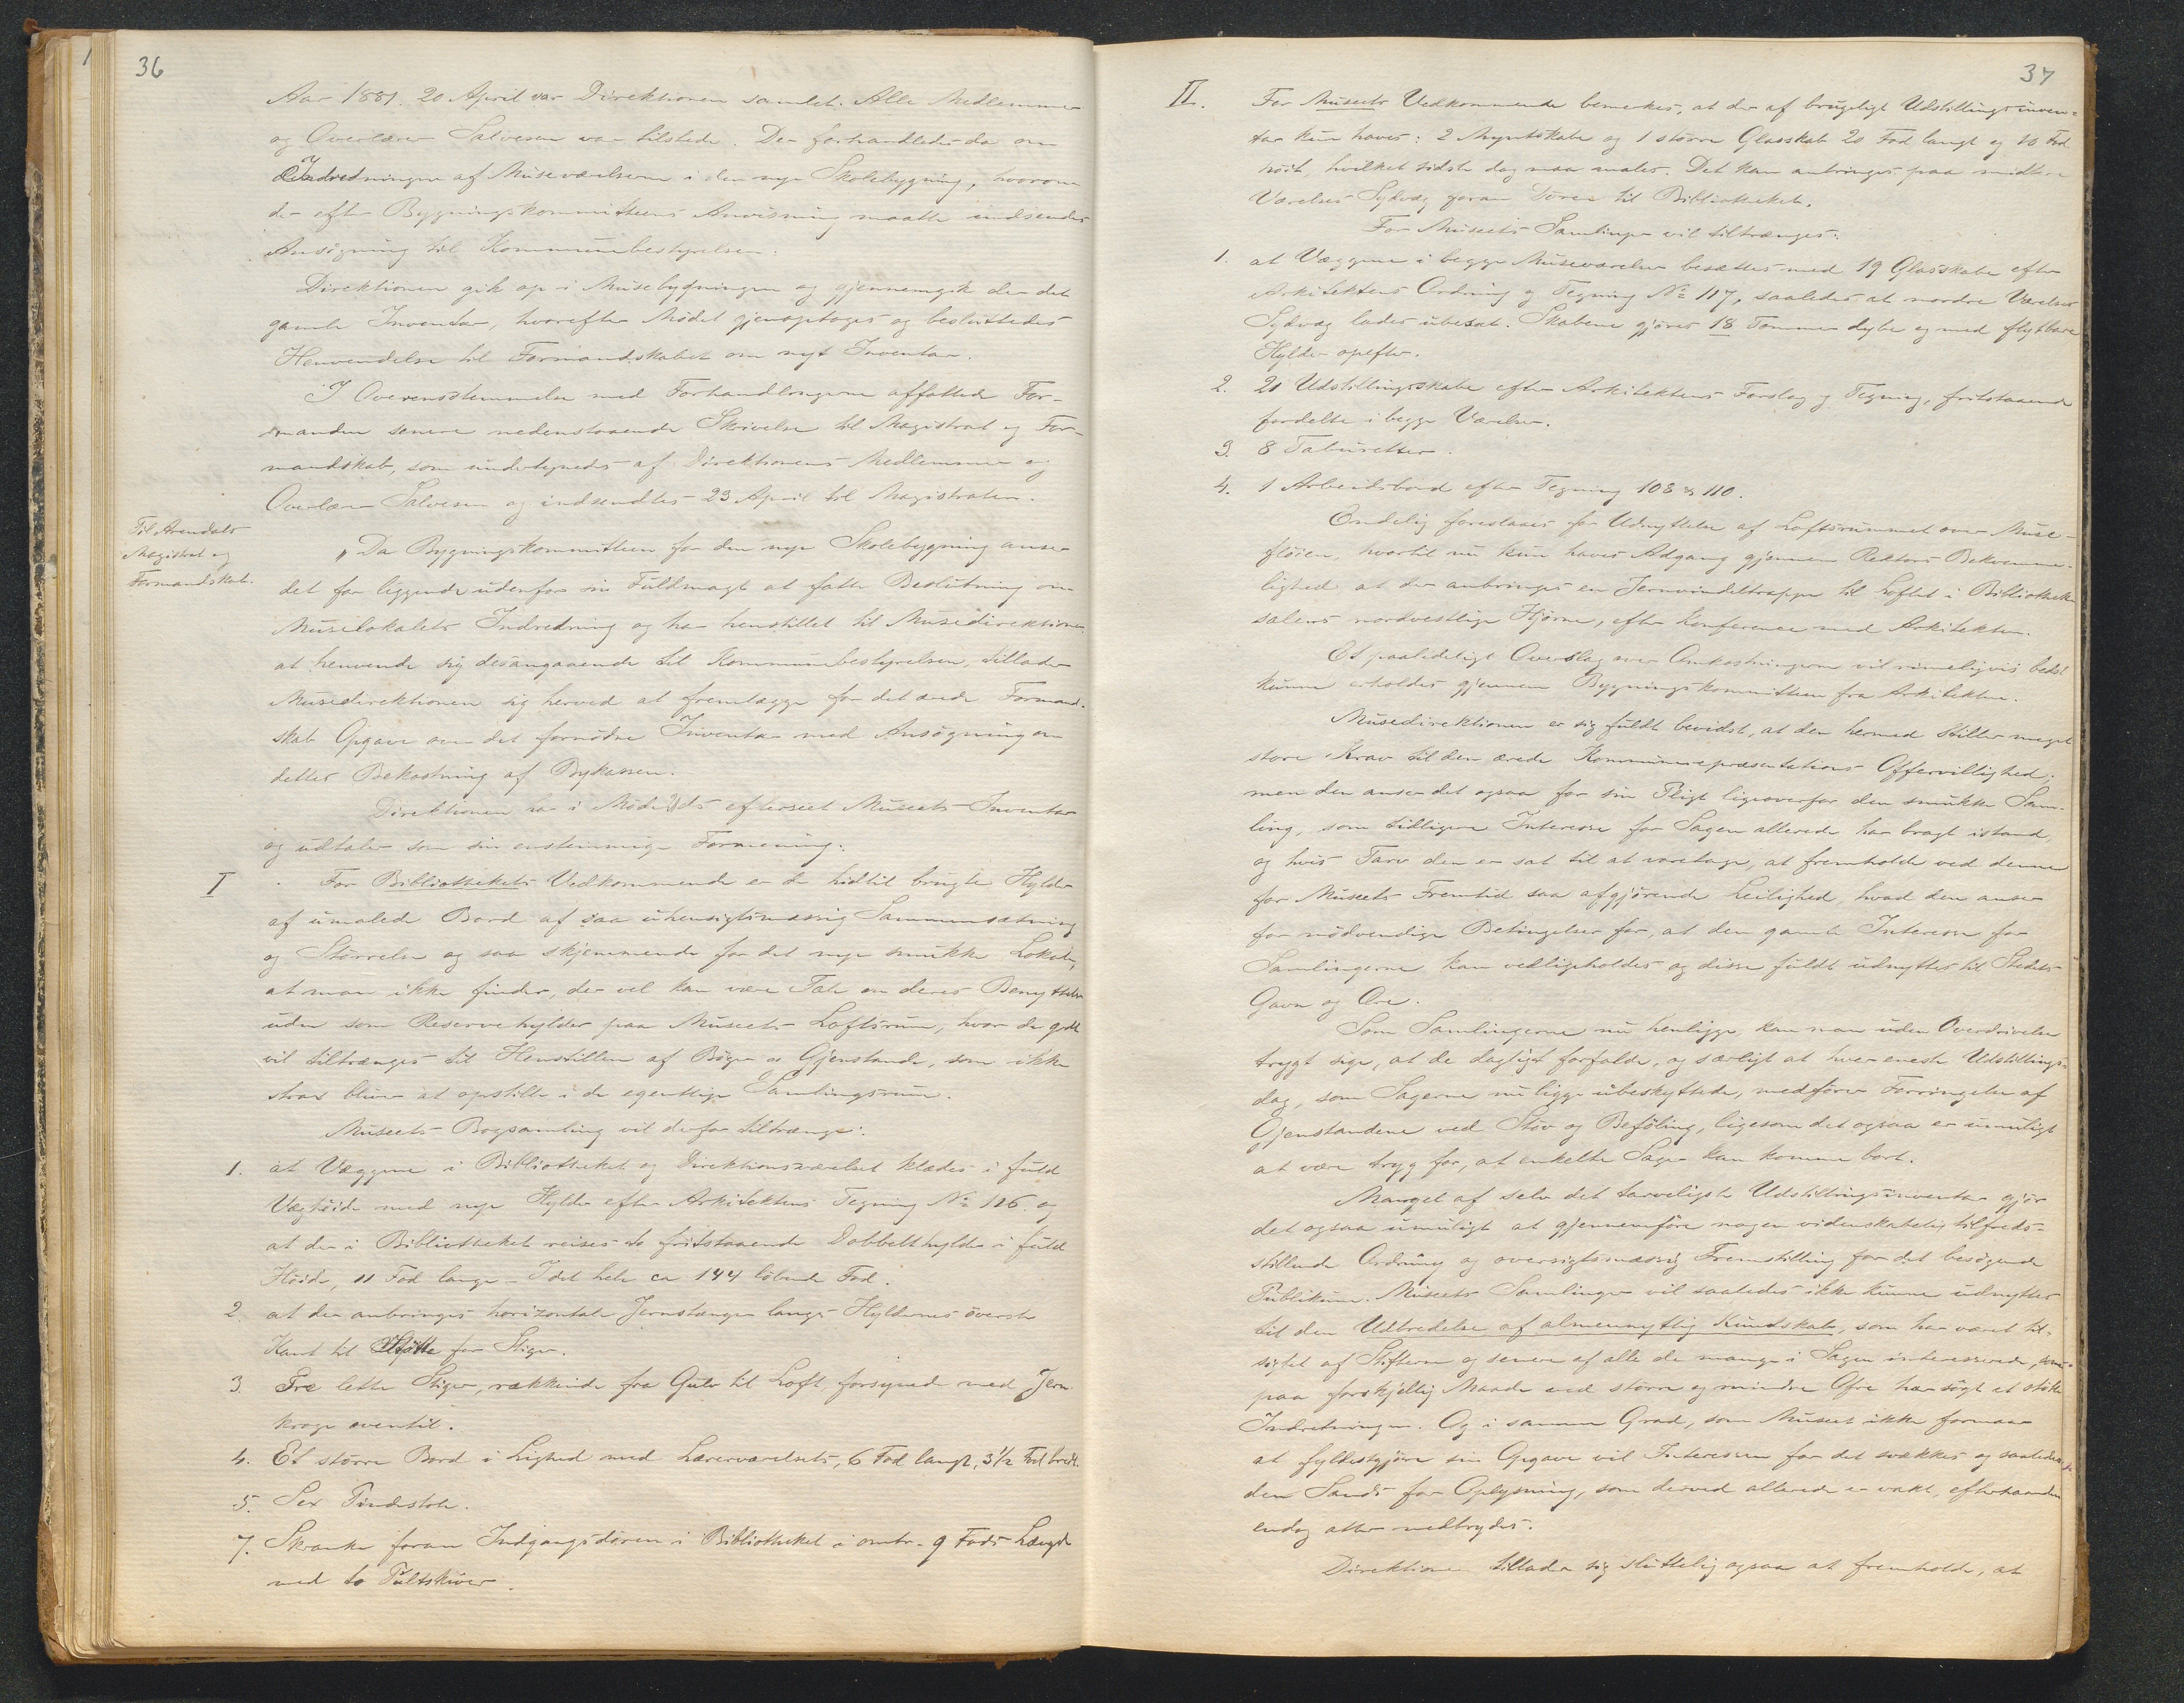 36
Aar 1881. 20 April var Direktionen samlet. Alle Medlemmer
og Overlærer Salvesen var tilstede. Der forhandledes da om
Indredningen af Museværelserne i den nye Skolebygning, hvorom
der efter Bygningskommitteens Anvisning maatte indsendes
Ansøgning til Kommunebestyrelsen.
Direktionen gik op i Musebygningen og gjennemgik der det
gamle Inventar, hvorefter Mødet gjenoptoges og besluttedes
Henvendelse til Formandskabet om nyt Inventar.
I Overensstemmelse med Forhandlingerne affattede For-
manden senere nedenstaaende Skrivelse til Magistrat og For-
mandskab, som undertegnedes af Direktionens Medlemmer og
Overlærer Salvesen og indsendtes 23 April til Magistraten.
Til Arendals
Magistrat og
Formandskab.
"Da Bygningskommitteen for den nye Skolebygning anser
det for liggende udenfor sin Fuldmagt at fatte Beslutning om
Muselokalets Indredning og har henstillet til Musedirektionen
at henvende sig desangaaende til Kommunebestyrelsen, tillader
Musedirektionen sig herved at fremlægge for det ærede Formand-
skab Opgave over det fornødne Inventar med Ansøgning om
dettes Bekostning af Bykassen.
Direktionen har i Møde Dds efterseet Museets Inventar
og udtaler som sin enstemmige Formening:
I
For Bibliothekets Vedkommende er de hidtil brugte Hylder
af umalede Bord af saa uhensigtsmæssig Sammensætning
og Størrelse og saa skjæmmende for det nye smukke Lokale,
at man ikke finder, der vel kan være Tale om deres Benyttelse
uden som Reservehylder paa Museets Loftsrum, hvor de godt
vil tiltrænges til Henstillen af Bøger og Gjenstande, som ikke
strax bliver at opstille i de egentlige Samlingsrum.
Museets Bogsamling vil derfor tiltrænge:
1. at Væggene i Bibliotheket og Direktionsværelset klædes i fuld
Væghøide med nye Hylder efter Arkitektens Tegning No 126. og
at der i Bibliotheket reises to fritstaaende Dobbelthylder i fuld
Høide, 11 Fod lange – I det hele ca 144 løbende Fod.
2. at der anbringes horizontale Jernstænger langs Hyldernes øverste
Kant til Støtte for Stiger.
3. Tre lette Stiger, rækkende fra Gulv til Loft, forsynede med Jern-
kroge oventil.
4. Et større Bord i Lighed med Lærerværelsets, 6 Fod langt, 3½ Fod bredt.
5. Sex Pindestole.
7. Skranke foran Indgangsdøren i Bibliotheket i omtr. 9 Fods Længde
med to Pultskiver.
37
II.
For Museets Vedkommende bemerkes, at der af brugeligt Udstillingsinven-
tar kun haves: 2 Myntskabe og 1 større Glasskab 20 Fod langt og 10 Fod
høit, hvilket sidste dog maa males. Det kan anbringes paa midtre
Værelses Sydvæg foran Døren til Bibliotheket.
For Museets Samlinger vil tiltrænges:
1. at Væggene i begge Museværelser besættes med 19 Glasskabe efter
Arkitektens Ordning og Tegning No 117, saaledes at nordre Værelses
Sydvæg lades ubesat. Skabene gjøres 18 Tommer dybe og med flytbare
Hylder opefter.
2. 20 Udstillingsskabe efter Arkitektens Forslag og Tegning, fritstaaende
fordelte i begge Værelser.
3. 8 Taburetter.
4. 1 Arbeidsbord efter Tegning 108 & 110.
Endelig foreslaaes for Udnyttelse af Loftsrummet over Muse-
fløien, hvortil nu kun haves Adgang gjennem Rektors Bekvemme-
lighed at der anbringes en Jernvindeltrappe til Loftet i Bibliothek-
salens nordvestlige Hjørne, efter Konference med Arkitekten.
Et paalideligt Overslag over Omkostningerne vil rimeligvis bedst
kunne erholdes gjennem Bygningskommitteen fra Arkitekten.
Musedirektionen er sig fuldt bevidst, at den hermed stiller meget
store Krav til den ærede Kommunerepræsentations Offervillighed;
men den anser det ogsaa for sin Pligt ligeoverfor den smukke Sam-
ling, som tidligere Interesse for Sagen allerede har bragt istand,
og hvis Tarv den er sat til at varetage, at fremholde ved denne
for Museets Fremtid saa afgjørende Leilighed, hvad den anser
for nødvendige Betingelser for, at den gamle Interesse for
Samlingerne kan vedligeholdes og disse fuldt udnyttes til Stedets
Gavn og Ære.
Som Samlingerne nu henligge, kan man uden Overdrivelse
trygt sige, at de dagligt forfalde, og særligt at hver eneste Udstillings-
dag, som Sagerne nu ligge ubeskyttede, medfører Forringelse af
Gjenstandene ved Støv og Beføling, ligesom det ogsaa er umuligt
at være tryg for, at enkelte Sager kan komme bort.
Mangel af selv det tarveligste Udstillingsinventar gjør
det ogsaa umuligt at gjennemføre nogen videnskabelig tilfreds-
stillende Ordning og oversigtsmæssig Fremstilling for det besøgende
Publikum. Museets Samlinger vil saaledes ikke kunne udnyttes
til den Udbredelse af almennyttig Kundskab, som har været til-
sigtet af Stifterne og senere af alle de mange i Sagen interesserede, som
paa forskjellig Maade ved større og mindre Ofre har søgt at støtte
Indretningen. Og i samme Grad, som Museet ikke formaar
at fyldestgjøre sin Opgave vil Interessen for det svækkes og saaledes
den Sands for Oplysning, som derved allerede er vakt, efterhaanden
endog atter nedbrydes.
Direktionen tillader sig sluttelig ogsaa at fremholde, at